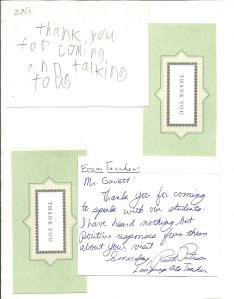 2013
thank you
for coming
and talking
to us
THANK YOU
THANK YOU
From Teacher:
Mr. Garrett:
Thank you for coming
to speak with our students.
I have heard nothing but
positive responses from them
about your visit.
Sincerely,
Language Arts Teacher